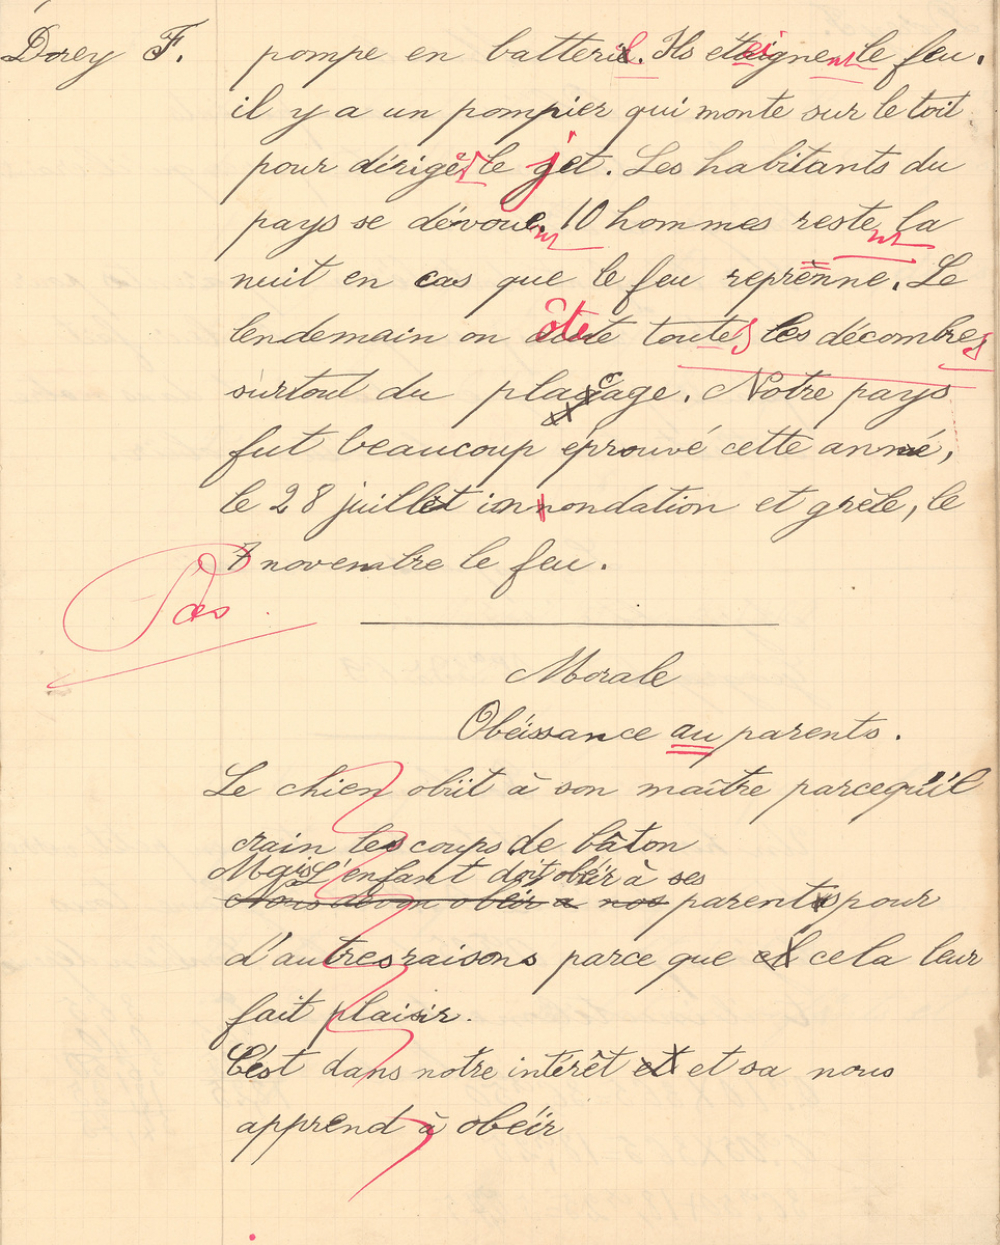 Dorey F. pompe en batterie. Ils éteignent le feu.
il y a un pompier qui monte sur le toit
pour dirigér le jet. Les habitants du
pays se dévouent. 10 hommes restent la
nuit en cas que le feu reprènne. Le
lendemain on ôte toutes les décombres
surtout du placage. Notre pays
fut beaucoup éprouvé cette anné,
le 28 juillet innondation et grèle, le
7 novembre le feu.
Morale
Obéissance au parents.
Le chien obéit à son maître parcequ'il
crain les coups de bâton
Mais L'enfant doit obéir à ses
Nous devon obéir a nos parents pour
d'autres raisons parce que cela leur
fait plaisir.
C'est dans notre intérêt et sa nous
apprend à obéir